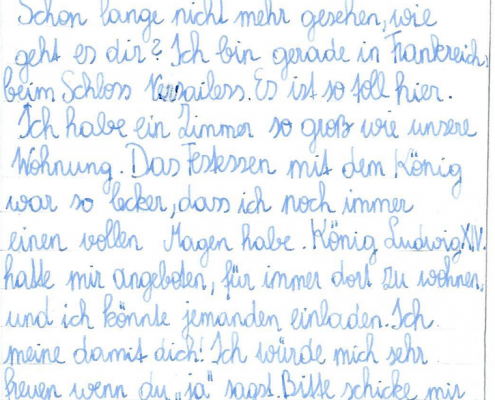 Schon lange nicht mehr gesehen, wie
geht es dir? Ich bin gerade in Frankreich,
beim Schloss Versailess. Es ist so toll hier.
Ich habe ein Zimmer so groß wie unsere
Wohnung. Das Festessen mit dem König
war so lecker, dass ich noch immer
einen vollen Magen habe. König Ludwig XIV.
hatte mir angeboten, für immer dort zu wohnen,
und ich könnte jemanden einladen. Ich
meine damit dich! Ich würde mich sehr
freuen wenn du „ja" sagst. Bitte schicke mir